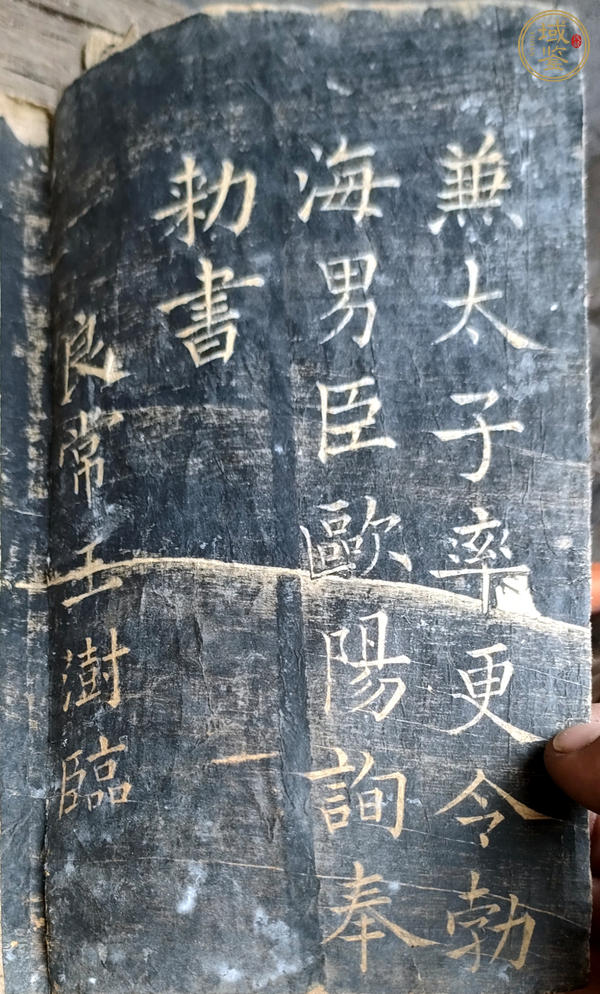 兼太子率更令勃
海男臣歐陽詢奉
勑書
良常王澍臨
域鉴